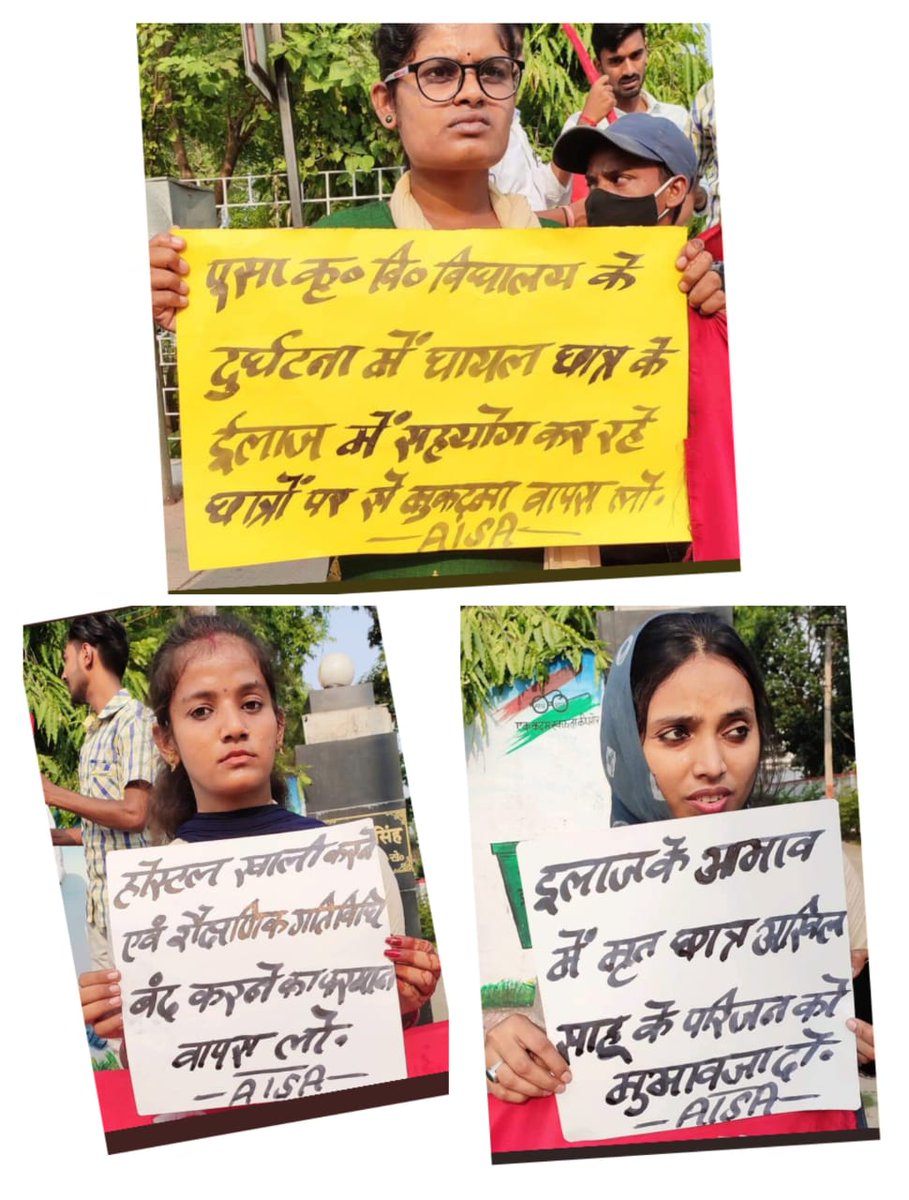 पूसा कृ० वि० विघालय के
दुर्घटना में घायल छात्र के
ईलाज में सहयोग कर रहे
छात्रों पर से मुकदमा वापस लो.
—AISA—
सिंह
होस्टल खाली करने
एवं शैक्षणिक गतिविधि
बंद करने का फरमान
वापस लो.
—AISA—
एक कदम स्वच्छता की ओर
इलाज के अभाव
में मृत छात्र अखिल
साहू के परिजन को
मुआवजा दो.
—AISA—